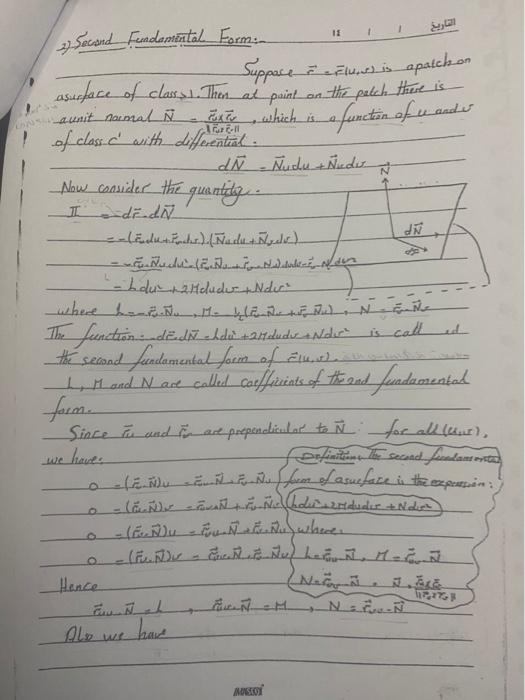 2) Second Fundamental Form:-
11 / / التاريخ
Suppose r⃗ = r⃗(u,v) is apatch on
asurface of class ≥1. Then at point on the patch there is
aunit noumal N⃗ = r⃗u×r⃗v / ||r⃗u×r⃗v||, which is a function of u and v
of class c' with differential:
dN⃗ = N⃗udu + N⃗vdv
Now consider the quantity.
II = -dr⃗.dN⃗
= -(r⃗udu+r⃗vdv).(N⃗udu+N⃗vdv)
= -r⃗u.N⃗udu²-(r⃗u.N⃗v+r⃗v.N⃗u)dudv-r⃗v.N⃗vdv²
= Ldu²+2Mdudv+Ndv²
N⃗
dN⃗
dr⃗
where L=-r⃗u.N⃗u, M=-½(r⃗u.N⃗v+r⃗v.N⃗u), N=-r⃗v.N⃗v
The function:-dr⃗.dN⃗=Ldu²+2Mdudv+Ndv² is call ed
the second fundamental form of r⃗(u,v).
L, M and N are called coefficients of the 2nd fundamental
form.
Since r⃗u and r⃗v are prependicular to N⃗ for all (u,v),
we have:
0 = (r⃗u.N⃗)u = r⃗uu.N⃗+r⃗u.N⃗u
0 = (r⃗u.N⃗)v = r⃗uv.N⃗+r⃗u.N⃗v
0 = (r⃗v.N⃗)u = r⃗vu.N⃗+r⃗v.N⃗u
0 = (r⃗v.N⃗)v = r⃗vv.N⃗+r⃗v.N⃗v
Definition: The second fundamental
form of asurface is the expression:
Ldu²+2Mdudv+Ndv²
where:
L=r⃗uu.N⃗, M=r⃗uv.N⃗
N=r⃗vv.N⃗, N⃗=r⃗u×r⃗v / ||r⃗u×r⃗v||
Hence
r⃗uu.N⃗=L, r⃗uv.N⃗=M, N=r⃗vv.N⃗
Also we have